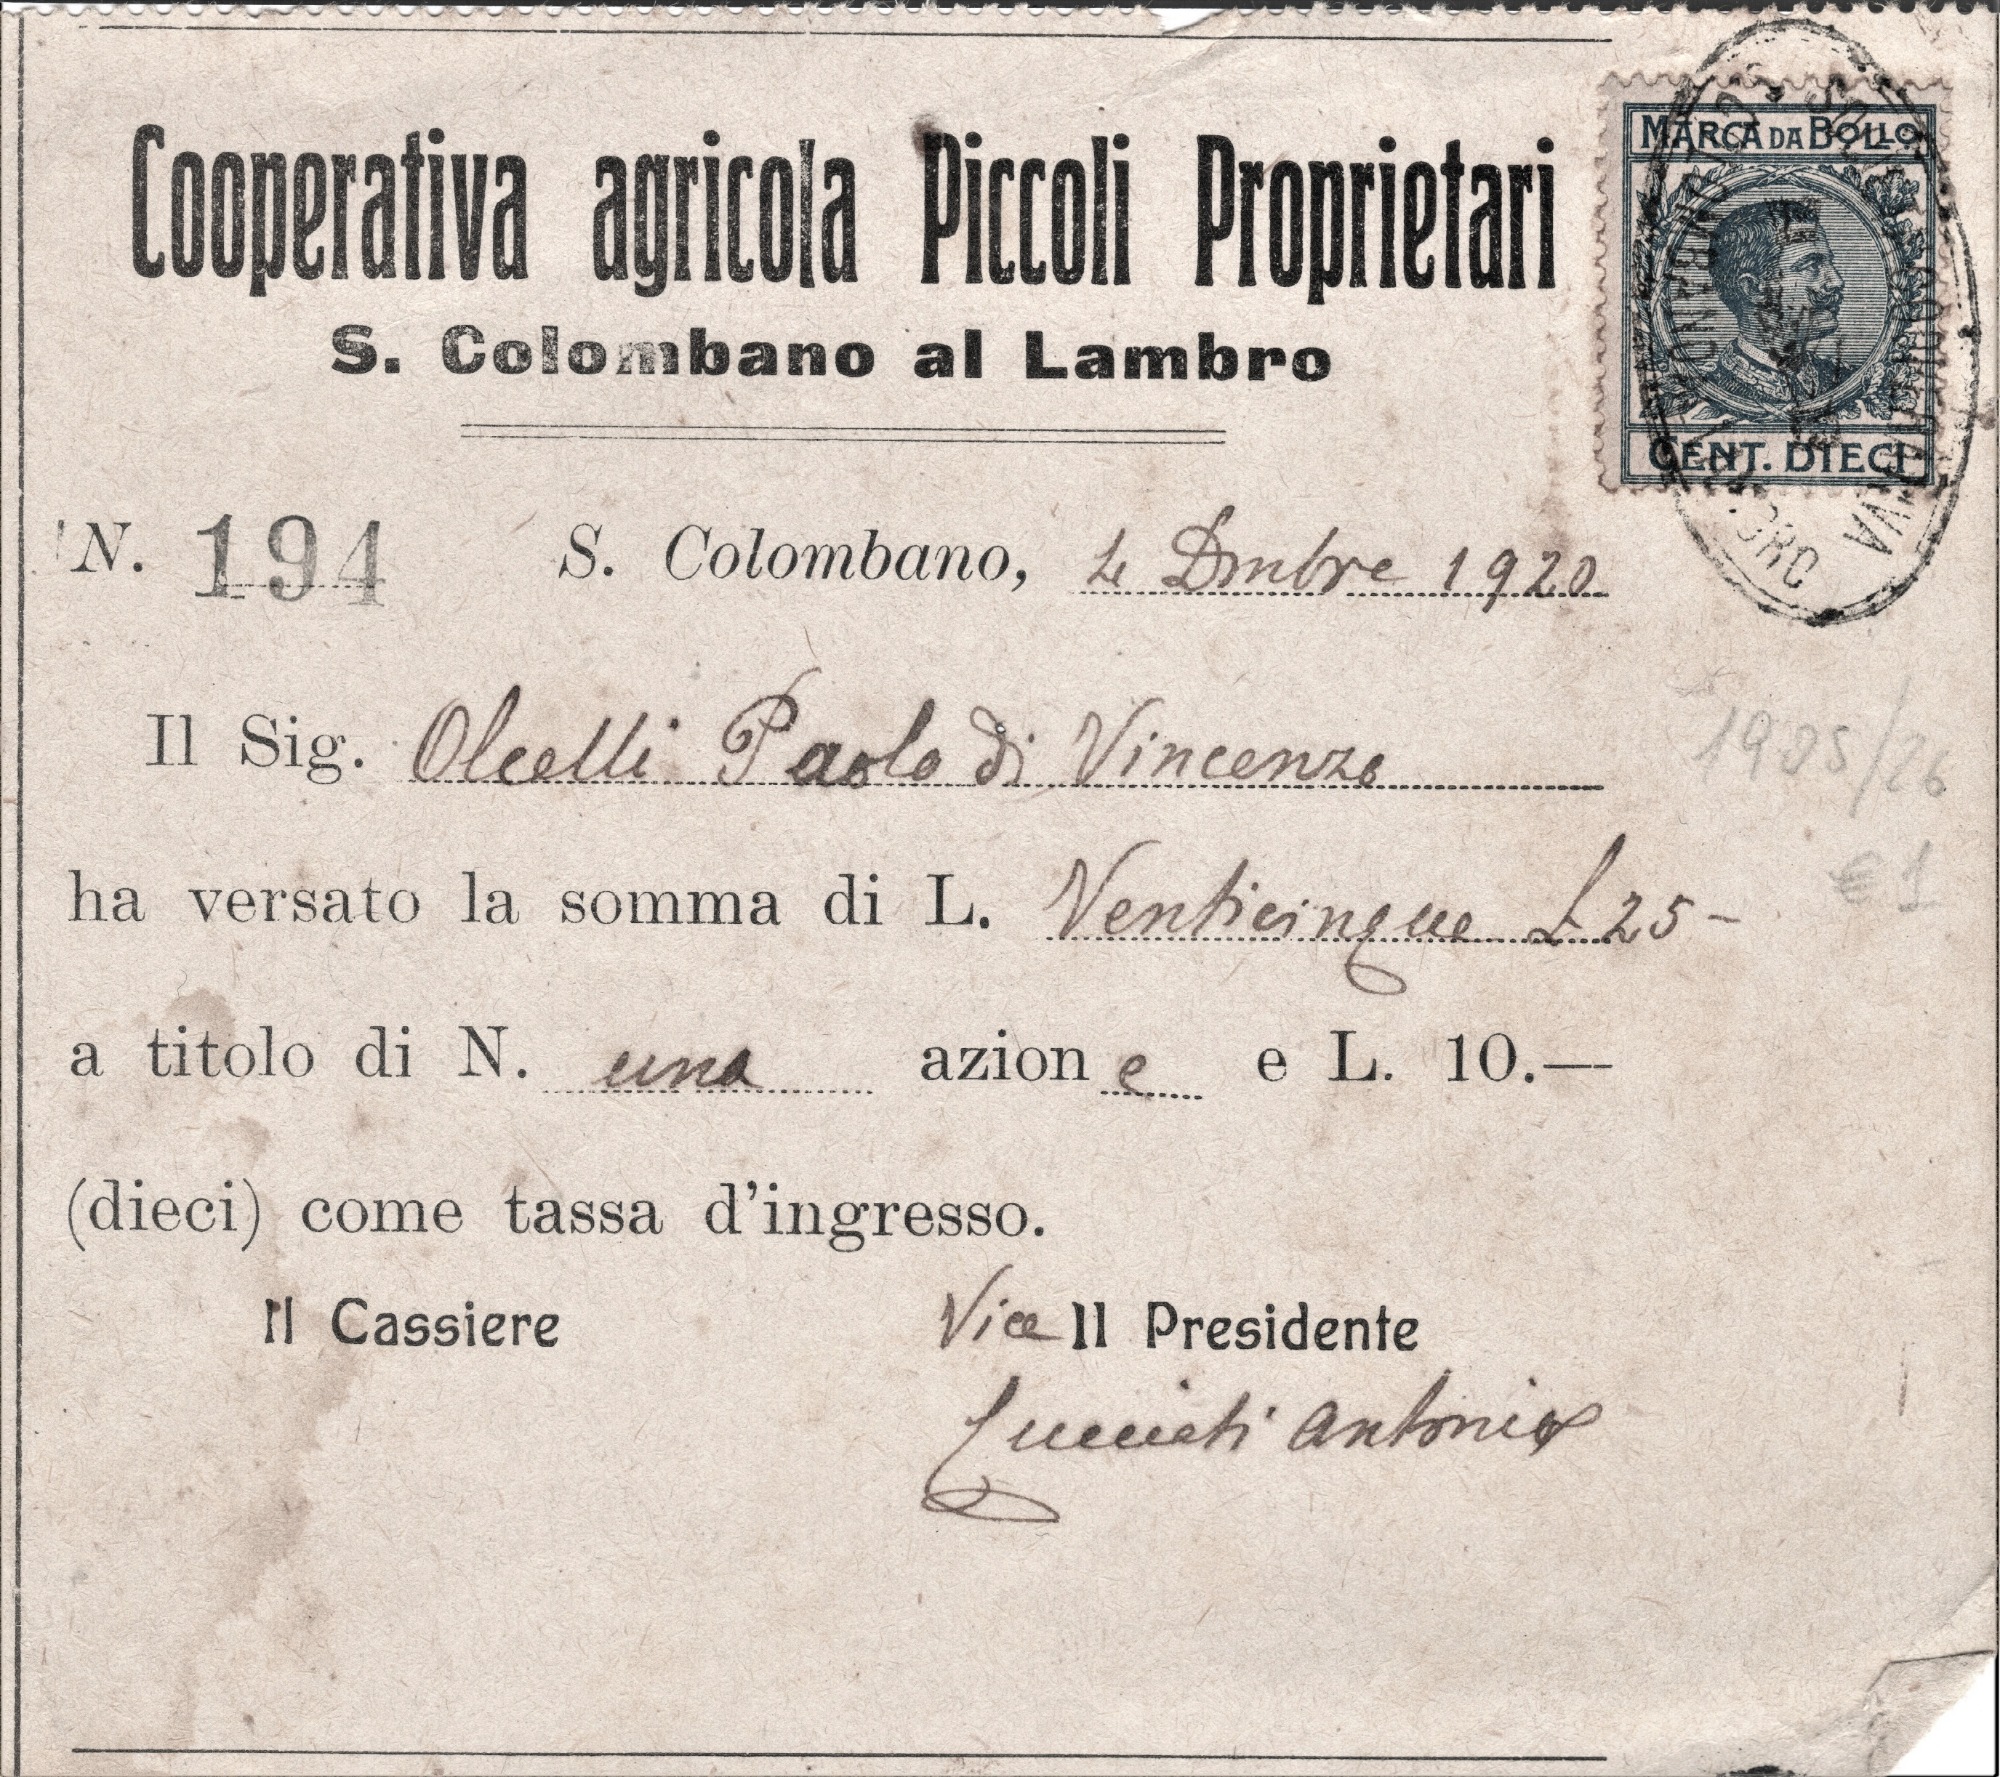 Cooperativa agricola Piccoli Proprietari
S. Colombano al Lambro
MARCA DA BOLLO
CENT. DIECI
N. 194 S. Colombano, 4 Dmbre 1920
Il Sig. Olcelli Paolo di Vincenzo
1925/26
ha versato la somma di L. Venticinque £ 25-
€ 1
a titolo di N. una azione e L. 10.—
(dieci) come tassa d'ingresso.
Il Cassiere Vice Il Presidente
Antonio